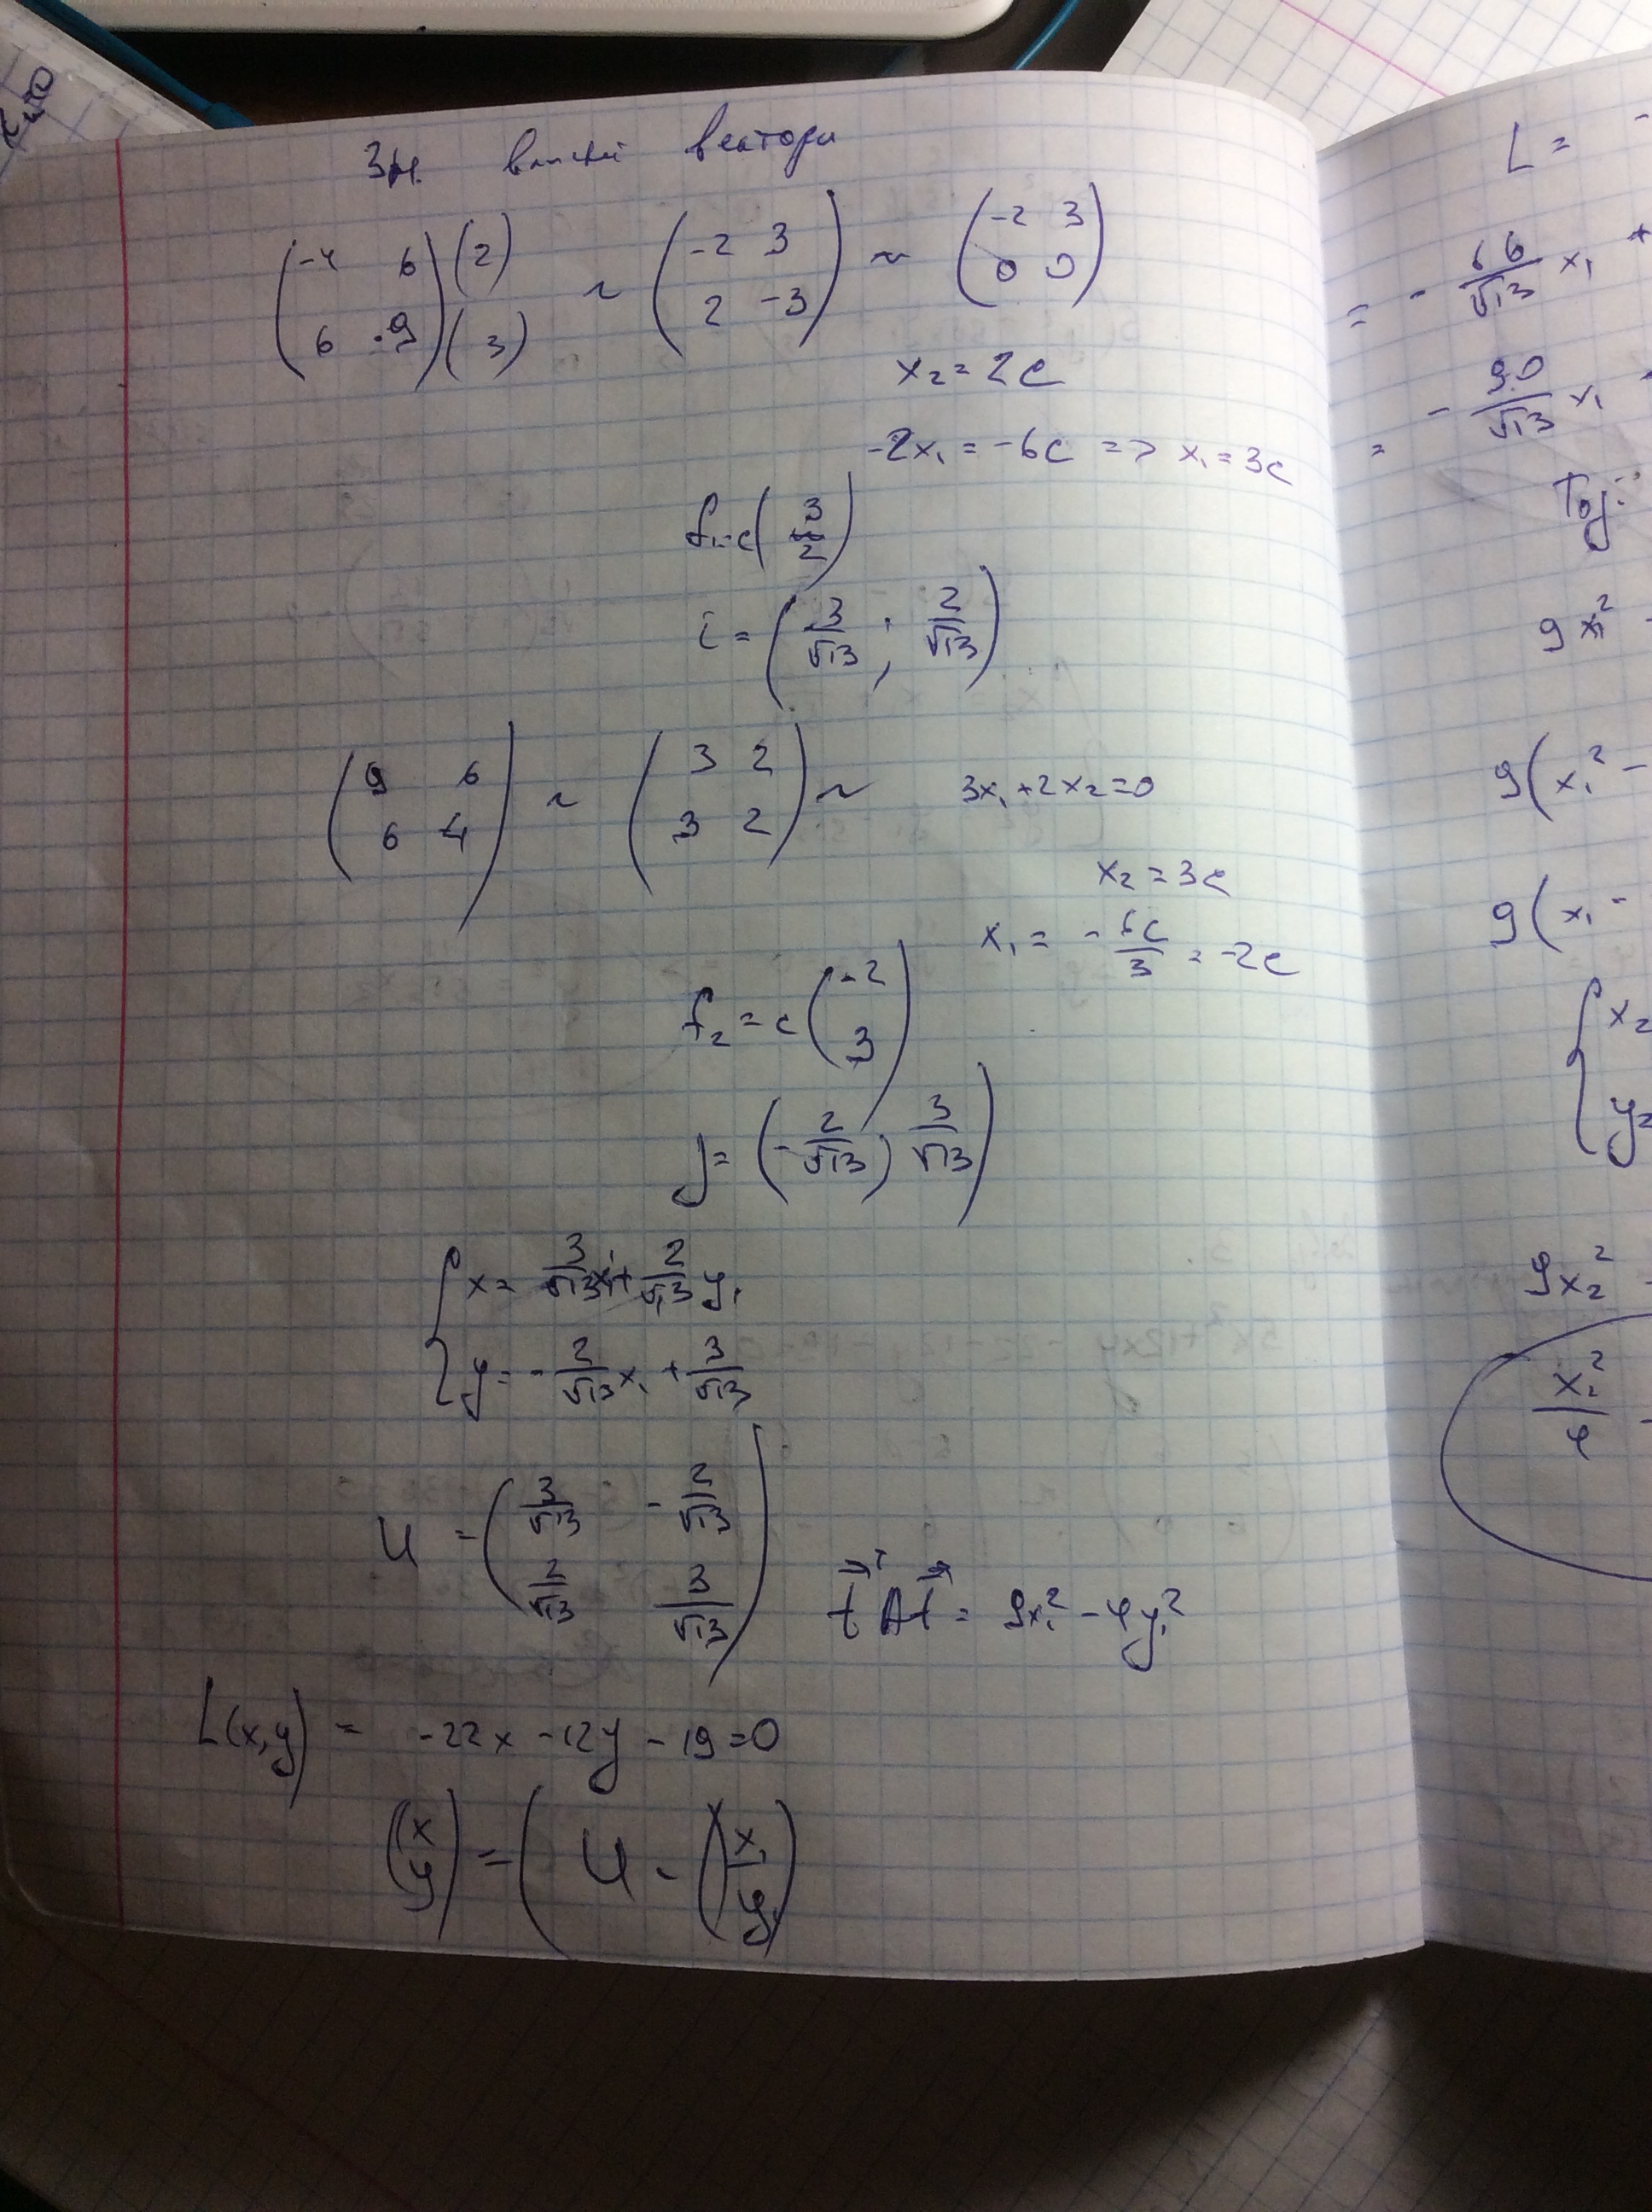 Зн. власні вектори
(-4 6) (2) ~ (-2 3) ~ (-2 3)
(6 -9) (3) (2 -3) (0 0)
x₂ = 2c
-2x₁ = -6c => x₁ = 3c
f₁ = c(3 2)
i = (3/√13 ; 2/√13)
(9 6) ~ (3 2) ~ 3x₁ + 2x₂ = 0
(6 4) (3 2)
x₂ = 3c
x₁ = -6c/3 = -2c
f₂ = c(-2 3)
j = (-2/√13 ; 3/√13)
{ x = 3/√13 x₁ + 2/√13 y₁
y = -2/√13 x₁ + 3/√13
U = (3/√13 -2/√13)
(2/√13 3/√13)
t⃗ᵀAt⃗ = 9x₁² - 4y₁²
L(x,y) = -22x - 12y - 19 = 0
(x y) = (U · (x₁ y₁)
L =
= - 66/√13 x₁ +
= - 90/√13 x₁
Тоді:
9x₁²
9(x₁² -
9(x₁ -
{ x₂
y₂
9x₂²
x₂²/4